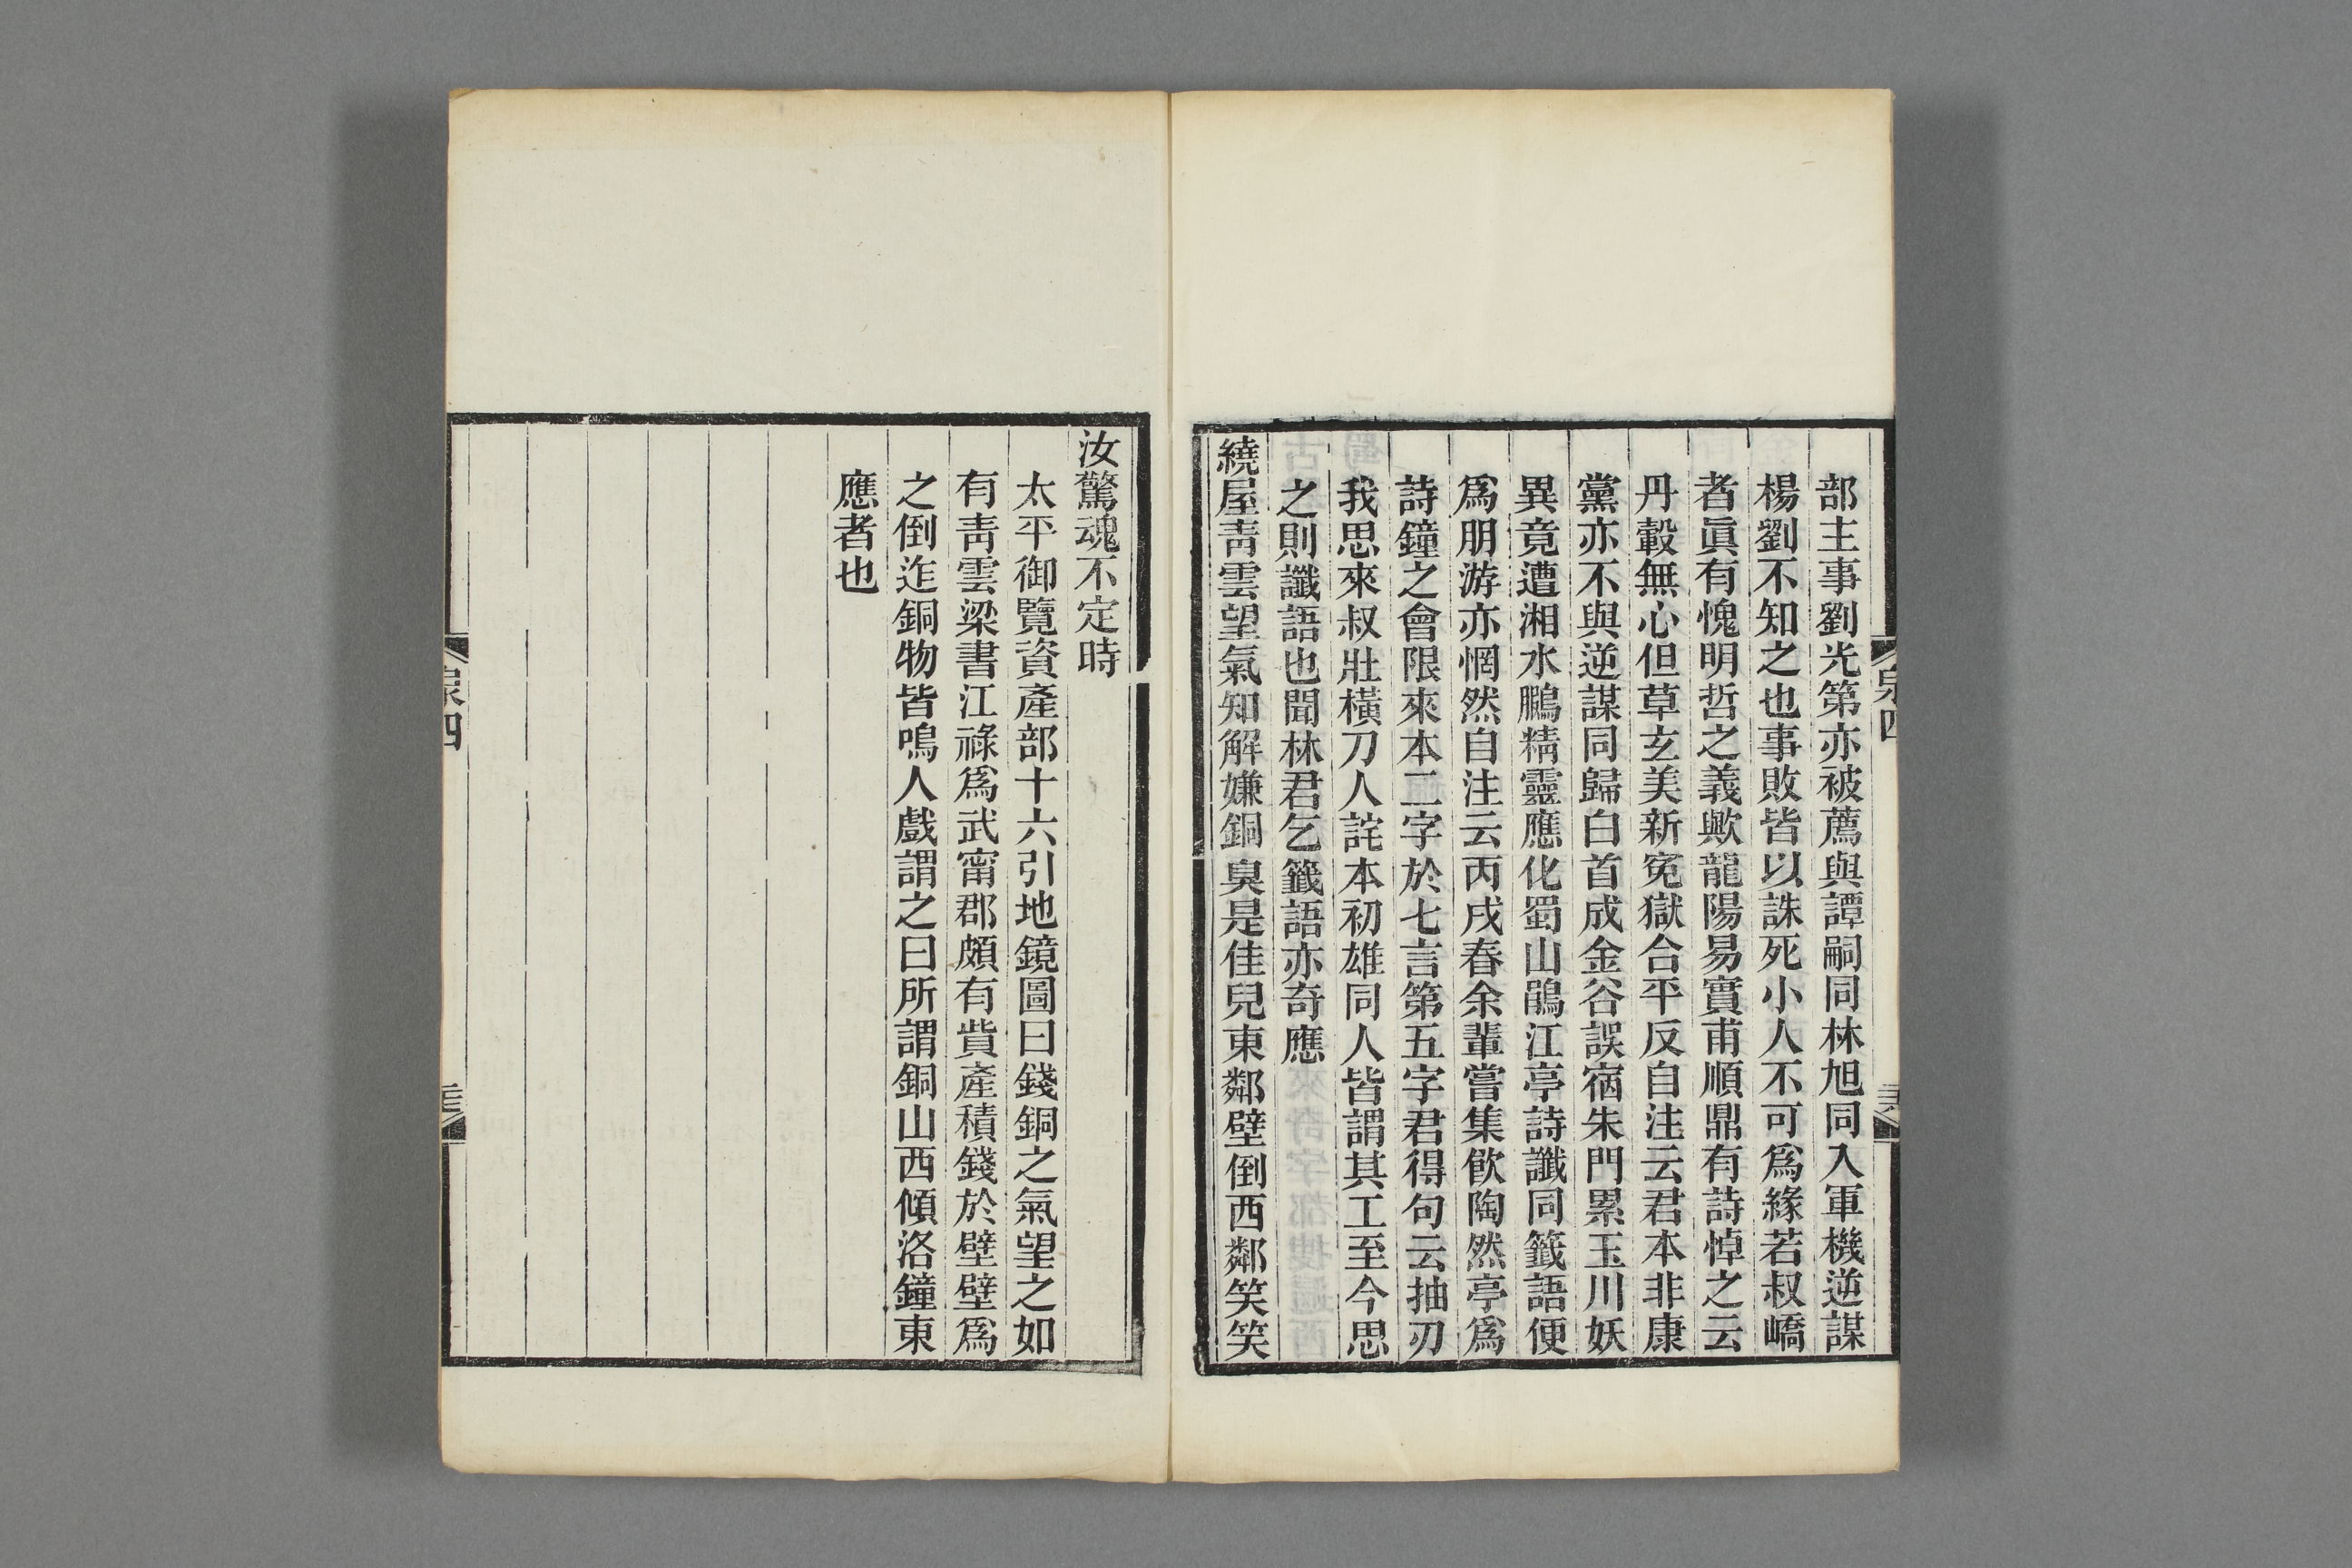 部主事劉光第亦被薦與譚嗣同林旭同入軍機逆謀
楊劉不知之也事敗皆以誅死小人不可爲緣若叔嶠
者眞有愧明哲之義歟龍陽易實甫順鼎有詩悼之云
丹轂無心但草玄美新寃獄合平反自注云君本非康
黨亦不與逆謀同歸白首成金谷誤宿朱門累玉川妖
異竟遭湘水鵩精靈應化蜀山鵑江亭詩讖同籤語便
爲朋游亦惘然自注云丙戌春余輩嘗集飮陶然亭爲
詩鐘之會限來本二字於七言第五字君得句云抽刃
我思來叔壯橫刀人詫本初雄同人皆謂其工至今思
之則讖語也聞林君乞籤語亦奇應
繞屋靑雲望氣知解嫌銅臭是佳兒東鄰壁倒西鄰笑笑
汝驚魂不定時
太平御覽資產部十六引地鏡圖曰錢銅之氣望之如
有靑雲梁書江祿爲武甯郡頗有貲產積錢於壁壁爲
之倒迮銅物皆鳴人戲謂之曰所謂銅山西傾洛鐘東
應者也
泉四